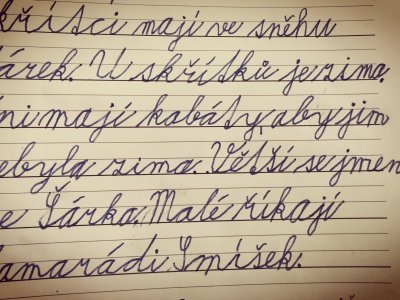 křítci mají ve sněhu
árek. U skřítků je zima.
ni mají kabáty, aby jim
ebyla zima. Větší se jmen
e Šárka. Malé říkají
amarádi Smíšek.